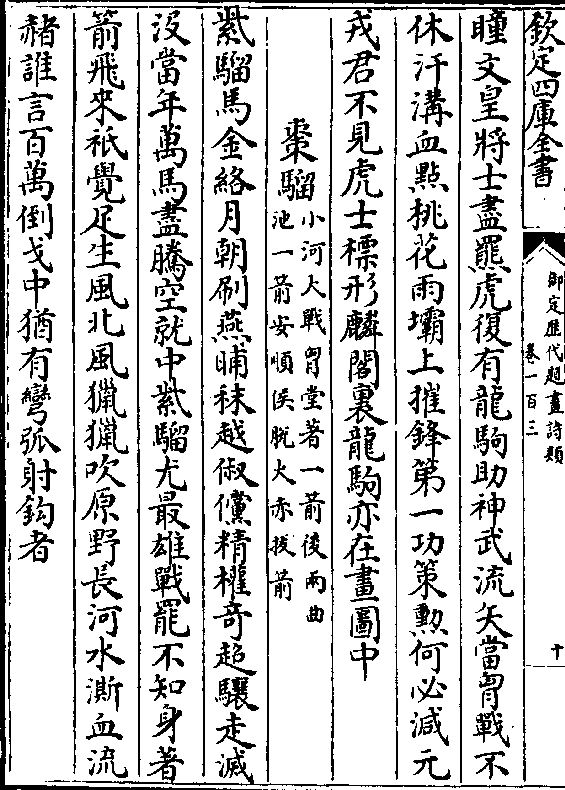 欽定四庫全書
御定歷代題畫詩類
卷一百三
十
瞳文皇將士盡羆虎復有龍駒助神武流矢當胷戰不
休汗溝血點桃花雨壩上摧鋒第一功策勲何必減元
戎君不見虎士標形麟閣裏龍駒亦在畫圖中
棗騮
小河大戰胷堂著一箭後兩曲
池一箭安順侯脱火赤拔箭
紫騮馬金絡月朝刷燕晡秣越俶儻精權奇超驤走滅
沒當年萬馬盡騰空就中紫騮尤最雄戰罷不知身著
箭飛來祗覺足生風北風獵獵吹原野長河水澌血流
赭誰言百萬倒戈中猶有彎弧射鈎者